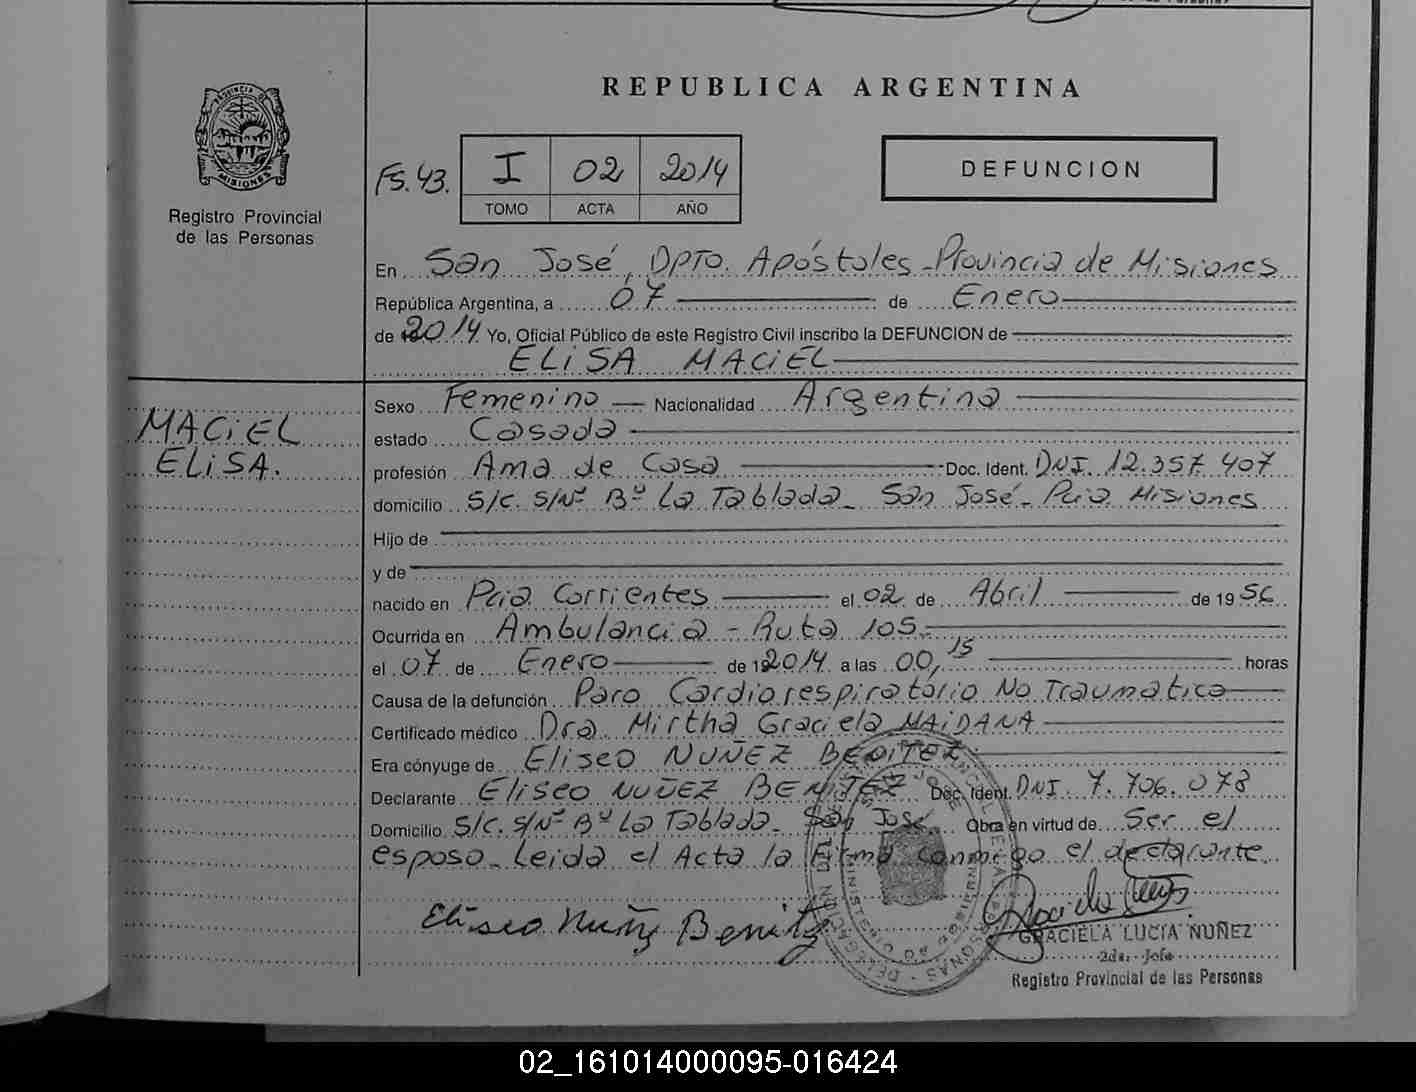 REPUBLICA ARGENTINA
PROVINCIA DE
MISIONES
Registro Provincial
de las Personas
Fs. 43.
I 02 2014
TOMO ACTA AÑO
DEFUNCION
En San José, DPTO. Apóstoles - Provincia de Misiones
República Argentina, a 07 de Enero
de 2014 Yo, Oficial Público de este Registro Civil inscribo la DEFUNCION de
ELiSA MACiEL
MACiEL
ELiSA.
Sexo Femenino Nacionalidad Argentina
estado Casada
profesión Ama de Casa Doc. Ident. DNI. 12.357.407
domicilio S/C. S/Nº Bº La Tablada - San José - Pcia. Misiones
Hijo de
y de
nacido en Pcia Corrientes el 02 de Abril de 19
Ocurrida en Ambulancia - Ruta 105.
el 07 de Enero de 2014 a las 00,15 horas
Causa de la defunción Paro Cardiorespiratorio No Traumatico
Certificado médico Dra. Mirtha Graciela MAiDANA
Era cónyuge de Eliseo NUÑEZ BENiTEZ
Declarante Eliseo NUÑEZ BENiTEZ Doc. Ident. DNI. 7.706.078
Domicilio S/C. S/Nº Bº La Tablada - San José. Obra en virtud de Ser el
esposo - Leida el Acta la Firma conmigo el declarante.
Eliseo Nuñez Benitez
GRACIELA LUCIA NUÑEZ
2da. Jefe
Registro Provincial de las Personas
02_161014000095-016424